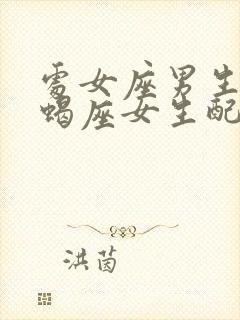 處女座男生
蝎座女生配
洪茵